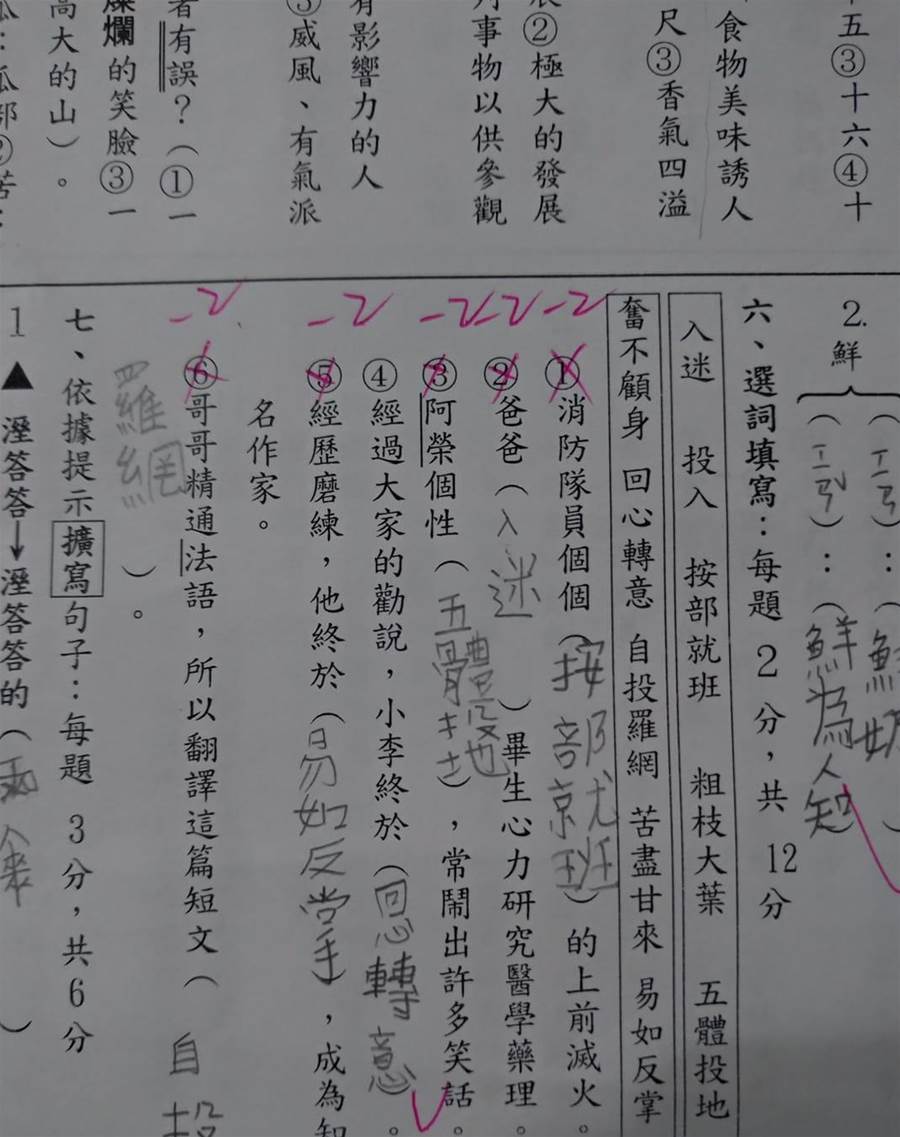 十五③十六④十
食物美味誘人
尺③香氣四溢
展②極大的發展
事物以供參觀
有影響力的人
③威風、有氣派
者有誤？（①一
燦爛的笑臉③一
高大的山）。
2.鮮
（ㄒㄧㄢ）：（鮮奶）
（ㄒㄧㄢˇ）：（鮮為人知）
六、選詞填寫：每題2分，共12分
入迷 投入 按部就班 粗枝大葉 五體投地
奮不顧身 回心轉意 自投羅網 苦盡甘來 易如反掌
-2 ①消防隊員個個（按部就班）的上前滅火。
-2 ②爸爸（入迷）畢生心力研究醫學藥理。
-2 ③阿榮個性（五體投地），常鬧出許多笑話。
④經過大家的勸說，小李終於（回心轉意）。
-2 ⑤經歷磨練，他終於（易如反掌），成為知
名作家。
-2 ⑥哥哥精通法語，所以翻譯這篇短文（自投
羅網）。
七、依據提示擴寫句子：每題3分，共6分
1▲溼答答→溼答答的（）